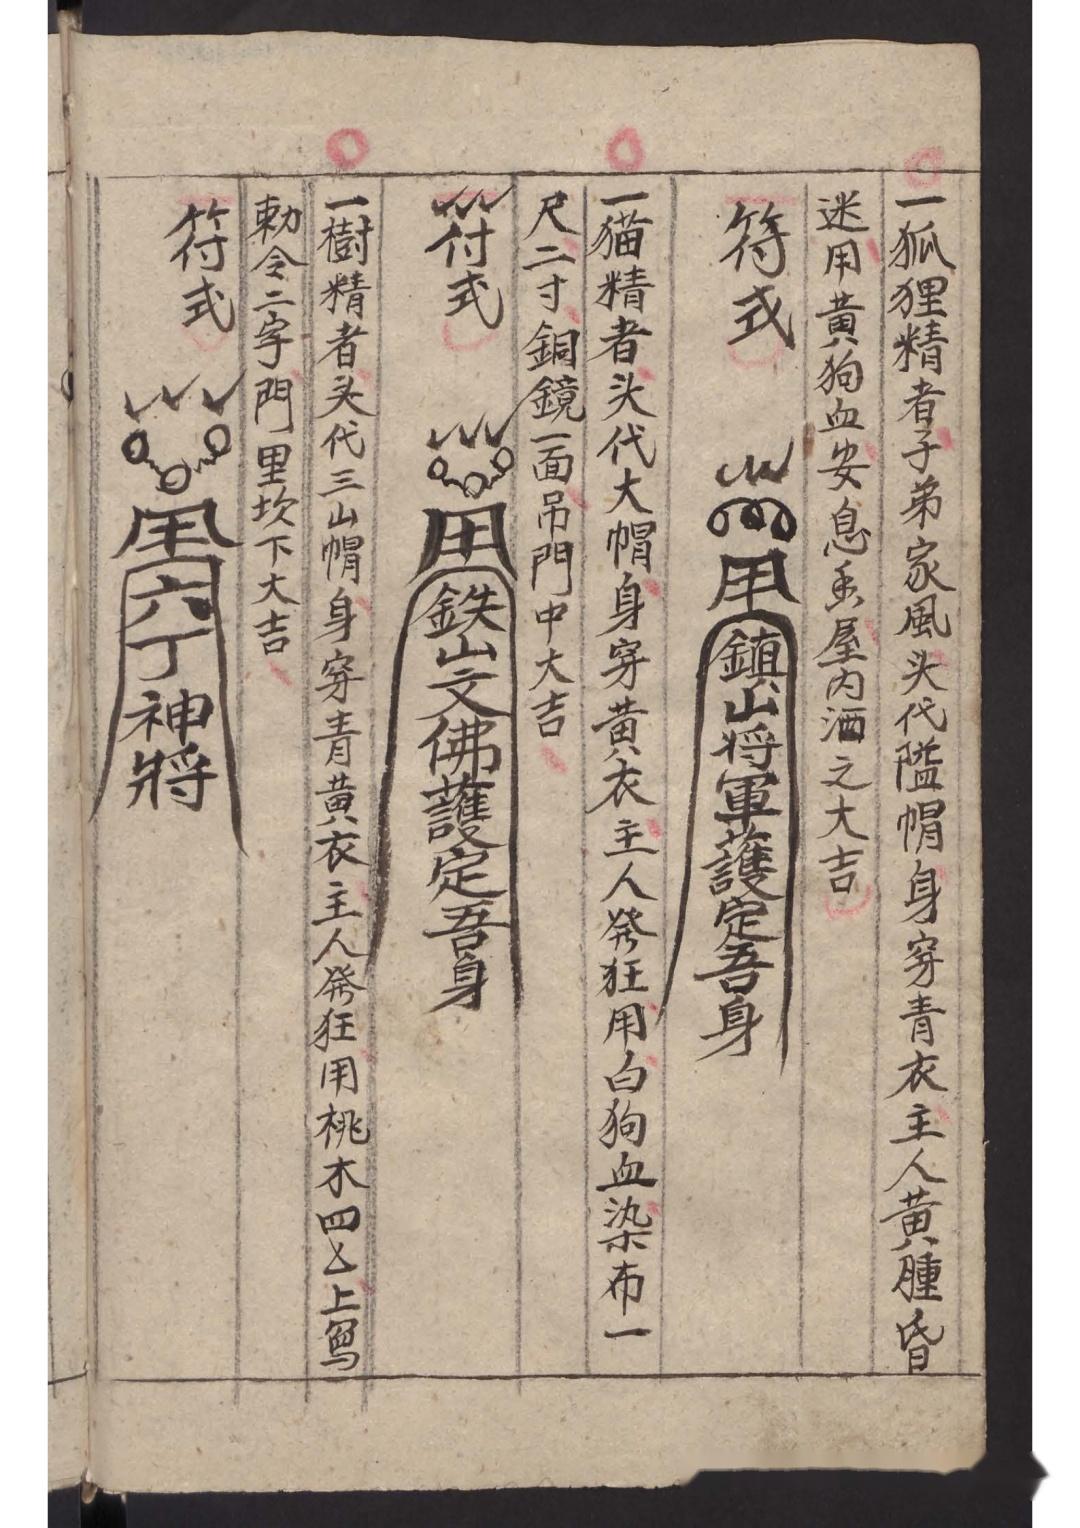 一狐狸精者子弟家風头代隘帽身穿青衣主人黄腫昏
迷用黄狗血安息香屋内洒之大吉
符式
用鎮山將軍護定吾身
一猫精者头代大帽身穿黄衣主人発狂用白狗血染布一
尺二寸銅鏡一面吊門中大吉
符式
用鉄山文佛護定吾身
一樹精者头代三山帽身穿青黄衣主人発狂用桃木四上寫
勅令二字門里坎下大吉
符式
用六丁神將